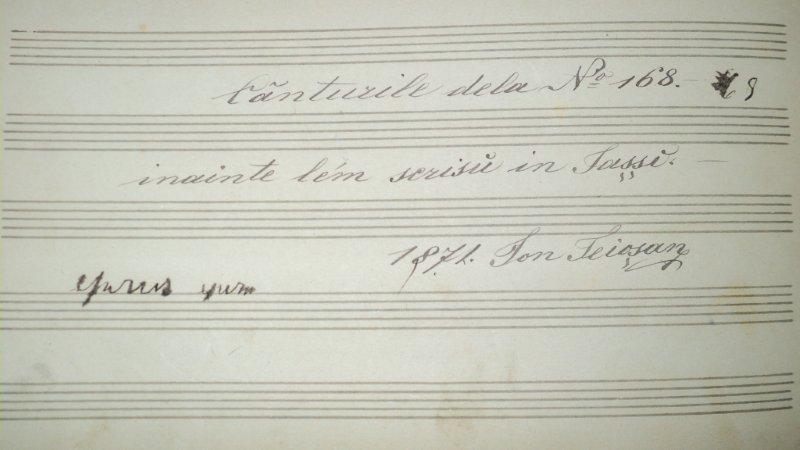 Cănturile dela Nº 168.
inainte lém scrisŭ in Iașșĭ. —
1871. Ion Teioșanu